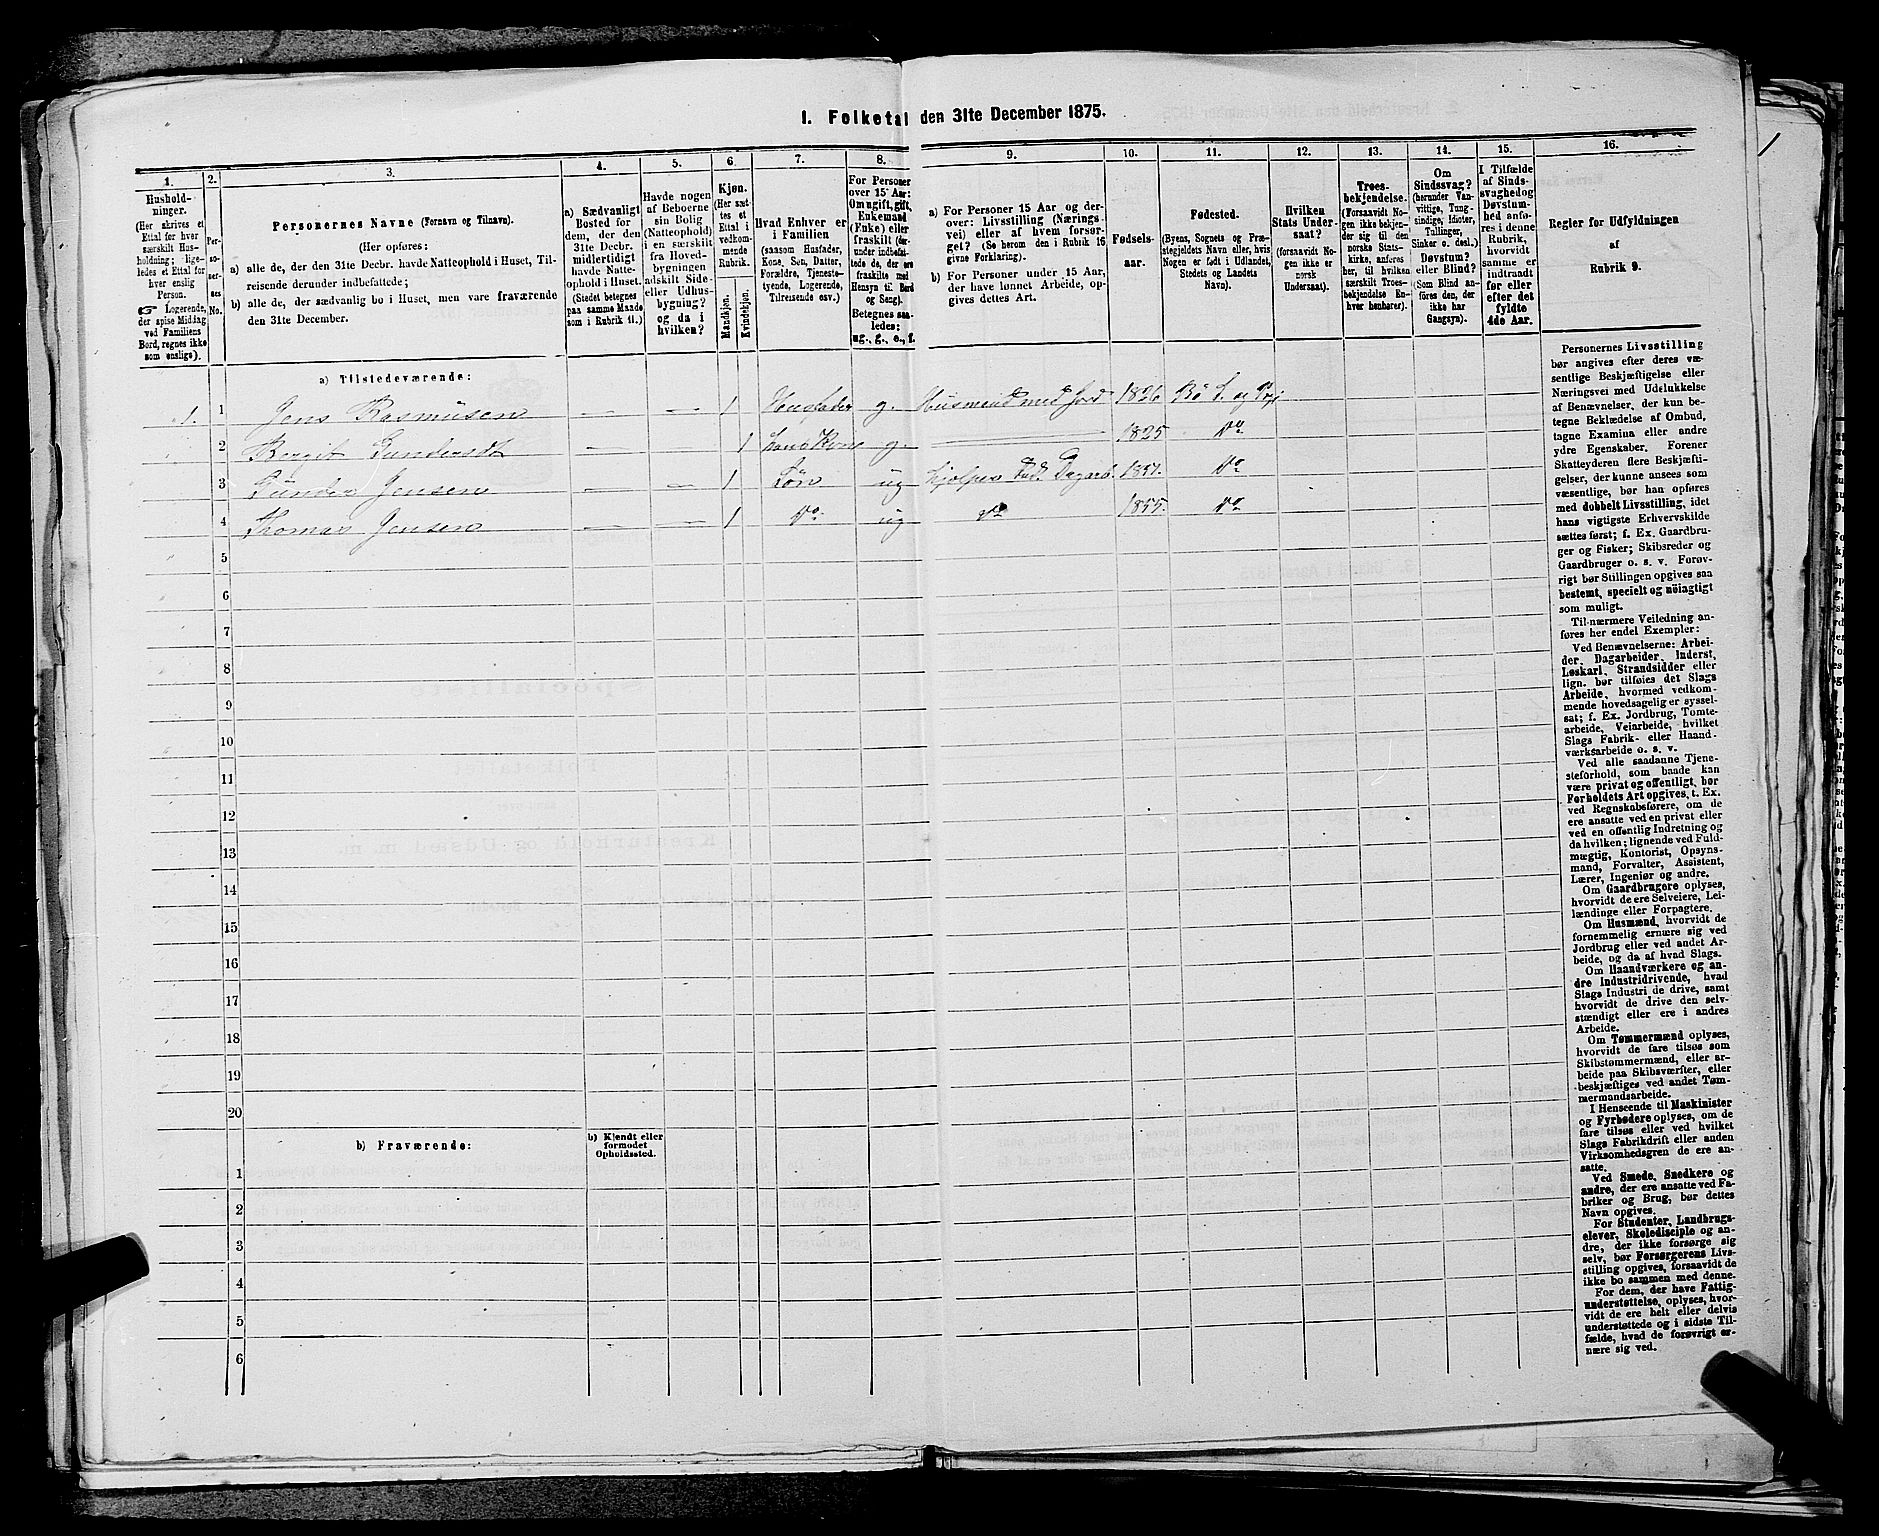 I. Folketal den 31te December 1875.
1.
Hushold-
ninger.
(Her skrives et
Ettal for hver
særskilt Hus-
holdning; lige-
ledes et Ettal for
hver enslig
Person.
☞ Logerende,
der spise Middag
ved Familiens
Bord, regnes ikke
som enslige).
2.
Per-
so-
ner-
nes
No.
3.
Personernes Navne (Fornavn og Tilnavn).
(Her opføres:
a) alle de, der den 31te Decbr. havde Natteophold i Huset, Til-
reisende derunder indbefattede;
b) alle de, der sædvanlig bo i Huset, men vare fraværende
den 31te December.
4.
a) Sædvanligt
Bosted for
dem, der den
31te Decbr.
midlertidigt
havde Natte-
ophold i Huset.
(Stedet betegnes
paa samme Maade
som i Rubrik 11.)
5.
Havde nogen
af Beboerne
sin Bolig
(Natteophold)
i en særskilt
fra Hoved-
bygningen
adskilt Side-
eller Udhus-
bygning?
og da i
hvilken?
6.
Kjøn.
(Her sæt-
tes et
Ettal i
vedkom-
mende
Rubrik.
Mandkjøn.
Kvindekjøn.
7.
Hvad Enhver er
i Familien
(saasom Husfader,
Kone, Søn, Datter,
Forældre, Tjeneste-
tyende, Logerende,
Tilreisende osv.)
8.
For Personer
over 15 Aar:
Om ugift, gift,
Enkemand
(Enke) eller
fraskilt (her-
under indbefat-
tede de, der ere
fraskilte med
Hensyn til Bord
og Seng).
Betegnes saa-
ledes:
ug., g., e., f.
9.
a) For Personer 15 Aar og der-
over: Livsstilling (Nærings-
vei) eller af hvem forsør-
get? (Se herom den i Rubrik 16
givne Forklaring).
b) For Personer under 15 Aar,
der have lønnet Arbeide, op-
gives dettes Art.
10.
Fødsels-
aar.
11.
Fødested.
(Byens, Sognets og Præ-
stegjeldets Navn eller, hvis
Nogen er født i Udlandet,
Stedets og Landets
Navn).
12.
Hvilken
Stats Under-
saat?
(forsaavidt No-
gen ikke er
norsk
Undersaat).
13.
Troes-
bekjendelse.
(Forsaavidt No-
gen ikke bekjen-
der sig til den
norske Stats-
kirke, anføres
her, til hvilken
særskilt Troes-
bekjendelse En-
hver henhører).
14.
Om
Sindssvag?
(herunder Van-
vittige, Tung-
sindige, Idioter,
Tullinger,
Sinker o. desl.)
Døvstum?
eller Blind?
(Som Blind an-
føres den, der
ikke har
Gangsyn).
15.
I Tilfælde
af Sinds-
svaghed og
Døvstum-
hed anfø-
res i denne
Rubrik,
hvorvidt
samme er
indtraadt
før eller
efter det
fyldte
4de Aar.
16.
Regler for Udfyldningen
af
Rubrik 9.
a) Tilstedeværende:
1. 1 Jens Rasmüsen — — 1 Husfader g. Husmand med Jord 1826 Bø S. og Prj
2 Bergit Gundersdt — — 1 hans Kone g. — 1825 Do
3 Günder Jensen — — 1 Søn ug hjelper Fad. Dagarb. 1851. Do
4 Thomas Jensen — — 1 Do ug do 1855. Do
5
6
7
8
9
10
11
12
13
14
15
16
17
18
19
20
b) Fraværende:
b) Kjendt eller
formodet
Opholdssted.
1
2
3
4
5
6
Personernes Livsstilling
bør angives efter deres væ-
sentlige Beskjæftigelse eller
Næringsvei med Udelukkelse
af Benævnelser, der kun be-
tegne Beklædelse af Ombud,
tagne Examina eller andre
ydre Egenskaber. Forener
Skatteyderen flere Beskjæfti-
gelser, der kunne ansees som
væsentlige, bør han opføres
med dobbelt Livsstilling, idet
hans vigtigste Erhvervskilde
sættes først; f. Ex. Gaardbru-
ger og Fisker; Skibsreder og
Gaardbruger o. s. v. Forøv-
rigt bør Stillingen opgives saa
bestemt, specielt og nöiagtigt
som muligt.
Til nærmere Veiledning an-
føres her endel Exempler:
Ved Benævnelserne: Arbei-
der, Dagarbeider, Inderst,
Løskarl, Strandsidder eller
lign. bør tilføies det Slags
Arbeide, hvormed vedkom-
mende hovedsagelig er syssel-
sat; f. Ex. Jordbrug, Tomte-
arbeide, Veiarbeide, hvilket
Slags Fabrik- eller Haand-
værksarbeide o. s. v.
Ved alle saadanne Tjene-
steforhold, som baade kan
være privat og offentligt, bør
Forholdets Art opgives, t. Ex.
ved Regnskabsførere, om de
ere ansatte ved en privat eller
ved en offentlig Indretning og
da hvilken; lignende ved Fuld-
mægtig, Kontorist, Opsyns-
mand, Forvalter, Assistent,
Lærer, Ingeniør og andre.
Om Gaardbrugere oplyses,
hvorvidt de ere Selveiere, Lei-
lændinge eller Forpagtere.
Om Husmænd, hvorvidt de
fornemmelig ernære sig ved
Jordbrug eller ved andet Ar-
beide, og da af hvad Slags.
Om Haandværkere og an-
dre Industridrivende, hvad
Slags Industri de drive, samt
hvorvidt de drive den selv-
stændigt eller ere i andres
Arbeide.
Om Tømmermænd oplyses,
hvorvidt de fare tilsøs som
Skibstømmermænd, eller ar-
beide paa Skibsværfter, eller
beskjæftiges ved andet Tøm-
mermandsarbeide.
I Henseende til Maskinister
og Fyrbødere oplyses, om de
fare tilsøs eller ved hvilket
Slags Fabrikdrift eller anden
Virksomhedsgren de ere an-
satte.
Ved Smede, Snedkere og
andre, der ere ansatte ved Fa-
briker og Brug, bør dettes
Navn opgives.
For Studenter, Landbrugs-
elever, Skoledisciple og an-
dre, der ikke forsørge sig
selv, bør Forsørgerens Livs-
stilling opgives, forsaavidt de
ikke bo sammen med denne.
For dem, der have Fattig-
understøttelse, oplyses, hvor-
vidt de ere helt eller delvis
understøttede og i sidste Til-
fælde, hvad de forøvrigt er-
nære sig ved.